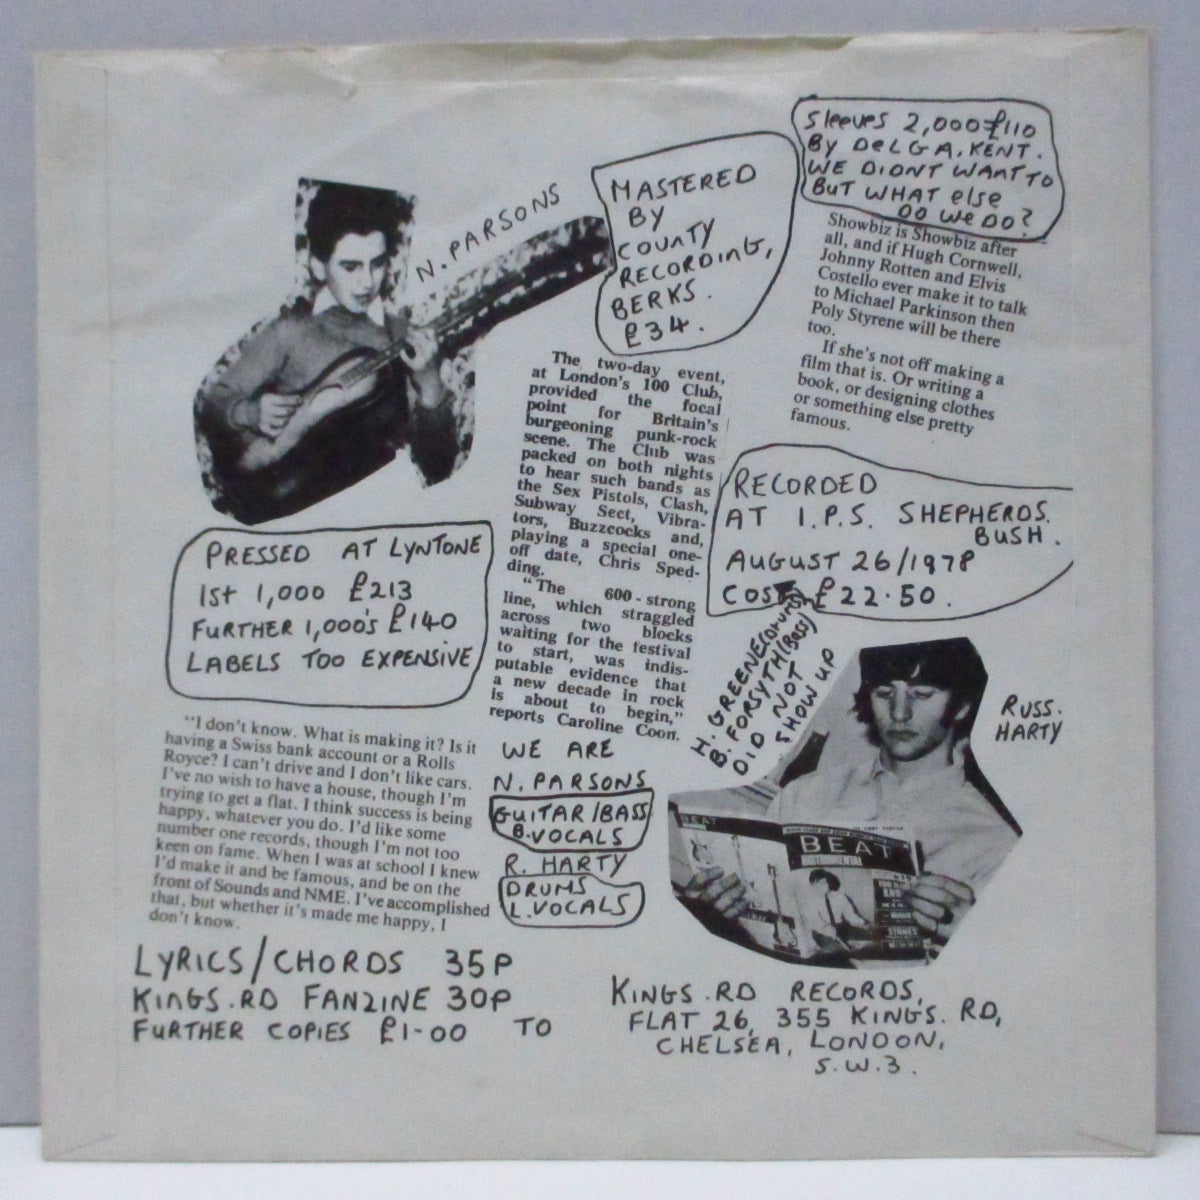 Sleeves 2,000 = £110
BY DELGA, KENT.
WE DIDNT WANT TO
BUT WHAT else
DO WE DO?
MASTERED
BY
COUNTY
RECORDING,
BERKS.
£34.
N. PARSONS
Showbiz is Showbiz after
all, and if Hugh Cornwell,
Johnny Rotten and Elvis
Costello ever make it to talk
to Michael Parkinson then
Poly Styrene will be there
too.
If she's not off making a
film that is. Or writing a
book, or designing clothes
or something else pretty
famous.
The two-day event,
at London's 100 Club,
provided the focal
point for Britain's
burgeoning punk-rock
scene. The Club was
packed on both nights
to hear such bands as
the Sex Pistols, Clash,
Subway Sect, Vibra-
tors, Buzzcocks and,
playing a special one-
off date, Chris Sped-
ding.
"The 600-strong
line, which straggled
across two blocks
waiting for the festival
to start, was indis-
putable evidence that
a new decade in rock
is about to begin,"
reports Caroline Coon.
RECORDED
AT I.P.S. SHEPHERDS.
BUSH.
AUGUST 26/1978
COST £22.50.
H. GREENE (drums)
B. FORSYTH (Bass)
DID NOT
SHOW UP
PRESSED AT LYNTONE
1st 1,000 £213
FURTHER 1,000's £140
LABELS TOO EXPENSIVE
"I don't know. What is making it? Is it
having a Swiss bank account or a Rolls
Royce? I can't drive and I don't like cars.
I've no wish to have a house, though I'm
trying to get a flat. I think success is being
happy, whatever you do. I'd like some
number one records, though I'm not too
keen on fame. When I was at school I knew
I'd make it and be famous, and be on the
front of Sounds and NME. I've accomplished
that, but whether it's made me happy, I
don't know.
WE ARE
N. PARSONS
GUITAR/BASS
B.VOCALS
R. HARTY
DRUMS
L.VOCALS
RUSS.
HARTY
BEAT
BEAT
LYRICS/CHORDS 35P
KINGS.RD FANZINE 30P
FURTHER COPIES £1-00 TO
KINGS.RD RECORDS,
FLAT 26, 355 KINGS. RD,
CHELSEA, LONDON,
S.W.3.